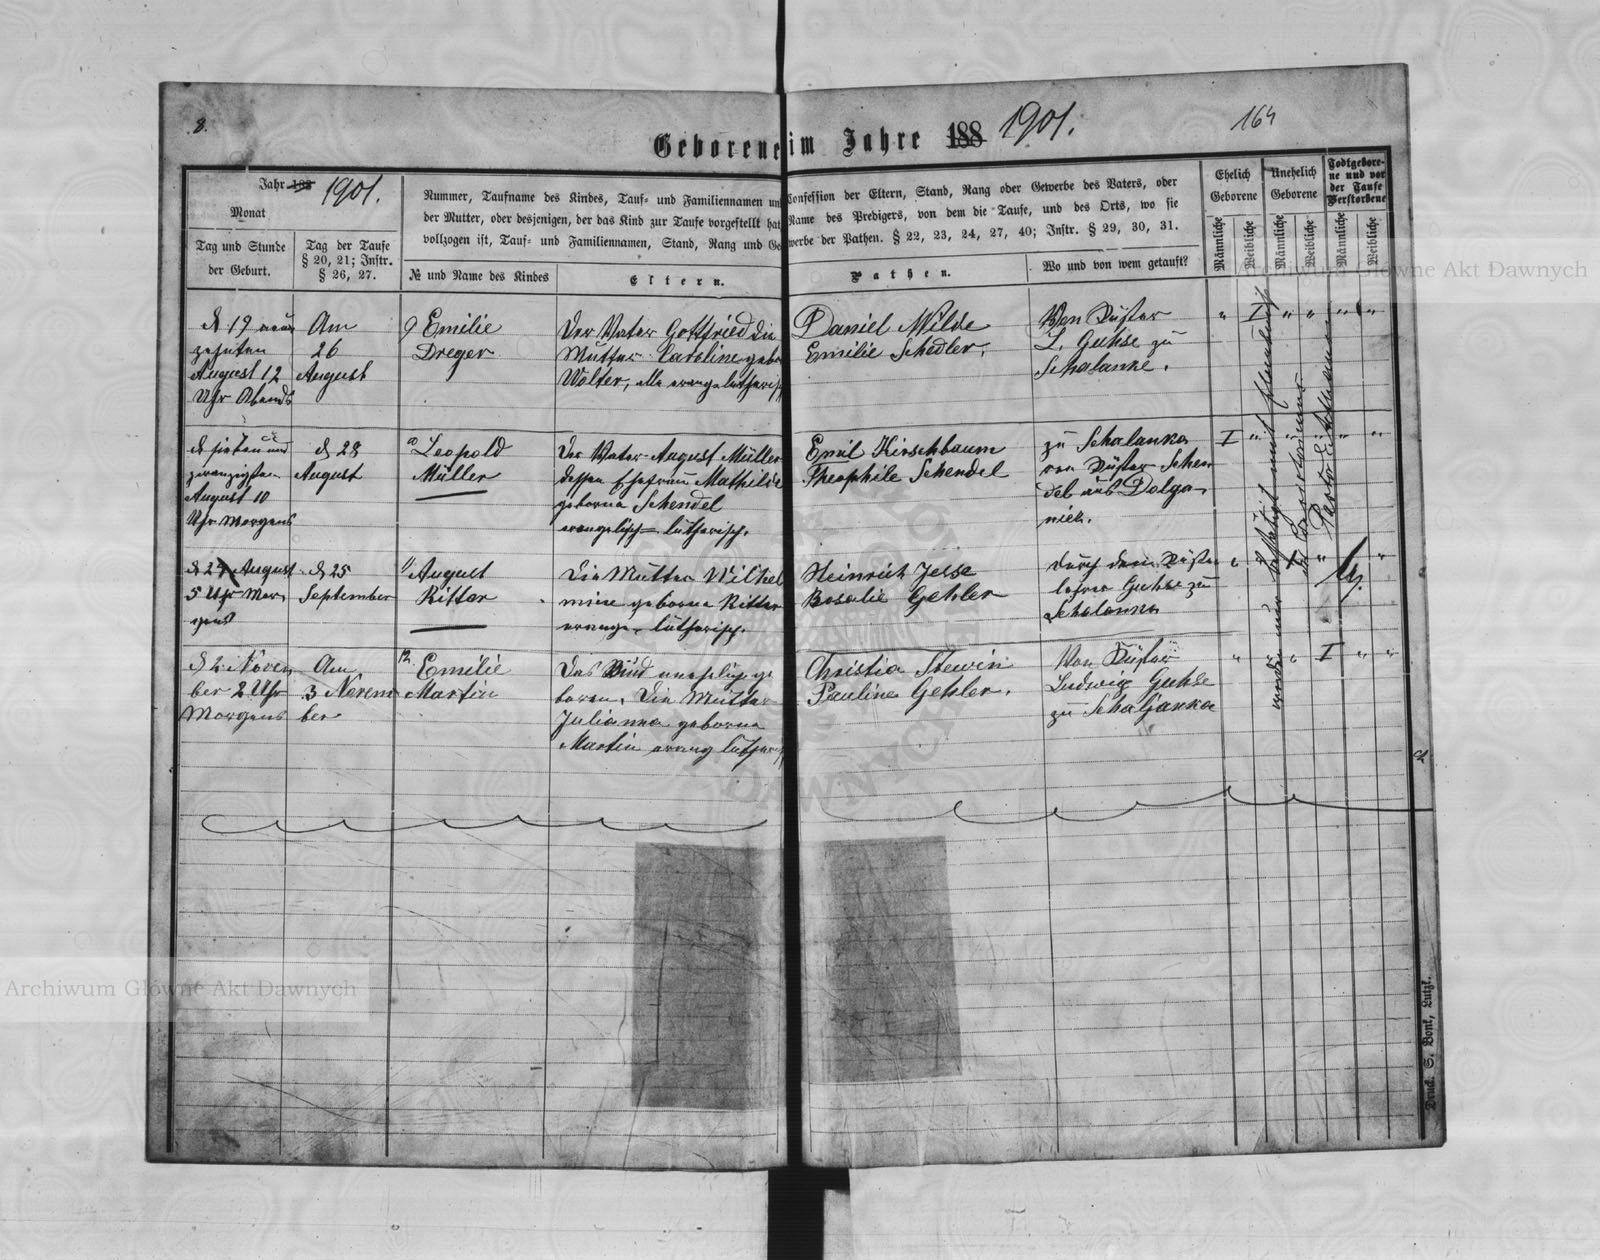 8.
164
Geborene im Jahre 188 1901.
Jahr 188 1901.
Monat
Tag und Stunde
der Geburt.
Tag der Taufe
§ 20, 21; Instr.
§ 26, 27.
Nummer, Taufname des Kindes, Tauf- und Familiennamen und Confession der Eltern, Stand, Rang oder Gewerbe des Vaters, oder
der Mutter, oder desjenigen, der das Kind zur Taufe vorgestellt hat Name des Predigers, von dem die Taufe, und des Orts, wo sie
vollzogen ist, Tauf- und Familiennamen, Stand, Rang und Gewerbe der Pathen. § 22, 23, 24, 27, 40; Instr. § 29, 30, 31.
№ und Name des Kindes
Eltern.
Pathen.
Wo und von wem getauft?
Ehelich
Geborene
Unehelich
Geborene
Todtgeborene
und vor
der Taufe
Verstorbene
Männliche
Weibliche
Männliche
Weibliche
Männliche
Weibliche
d 19 neun
zehnten
August 12
Uhr Abends
Am
26
August
9 Emilie
Dreger
Der Vater Gottfried die
Mutter Caroline gebo
Wolter, alle evange lutherisch
Daniel Wilde
Emilie Schedler.
Von Küster
L. Guhse zu
Schalanke.
" I " " " "
d sieben und
zwanzigsten
August 10
Uhr Morgens
d 28
August
10 Leopold
Müller
Der Vater August Müller
dessen Ehefrau Mathilde
geborne Schendel
evangelisch-lutherisch.
Emil Hirschbaum
Theophile Schendel
zu Schalanka
von Küster Schen
del aus Dolga
niec.
I " " " " "
d 24 August
5 Uhr Mor
gens
d 25
September
11 August
Ritter
Die Mutter Wilhel
mine geborne Ritter
evange. lutherisch.
Heinrich Jesse
Rosalie Gehler
durch den Küster
lehrer Guhse zu
Schalanka
" " I " "
d 2 Novem
ber 2 Uhr
Morgens
Am
3 Novem
ber
12. Emilie
Martin
Das Kind unehelich ge
boren. Die Mutter
Julianna geborne
Martin evang lutherisch
Christia Stewin
Pauline Gehler.
Von Küster
Ludwig Guhse
zu Schaljanka
" " " I " "
Pastor
Druck S. Bonk, Lutzk.
Archiwum Główne Akt Dawnych
Archiwum Główne Akt Dawnych